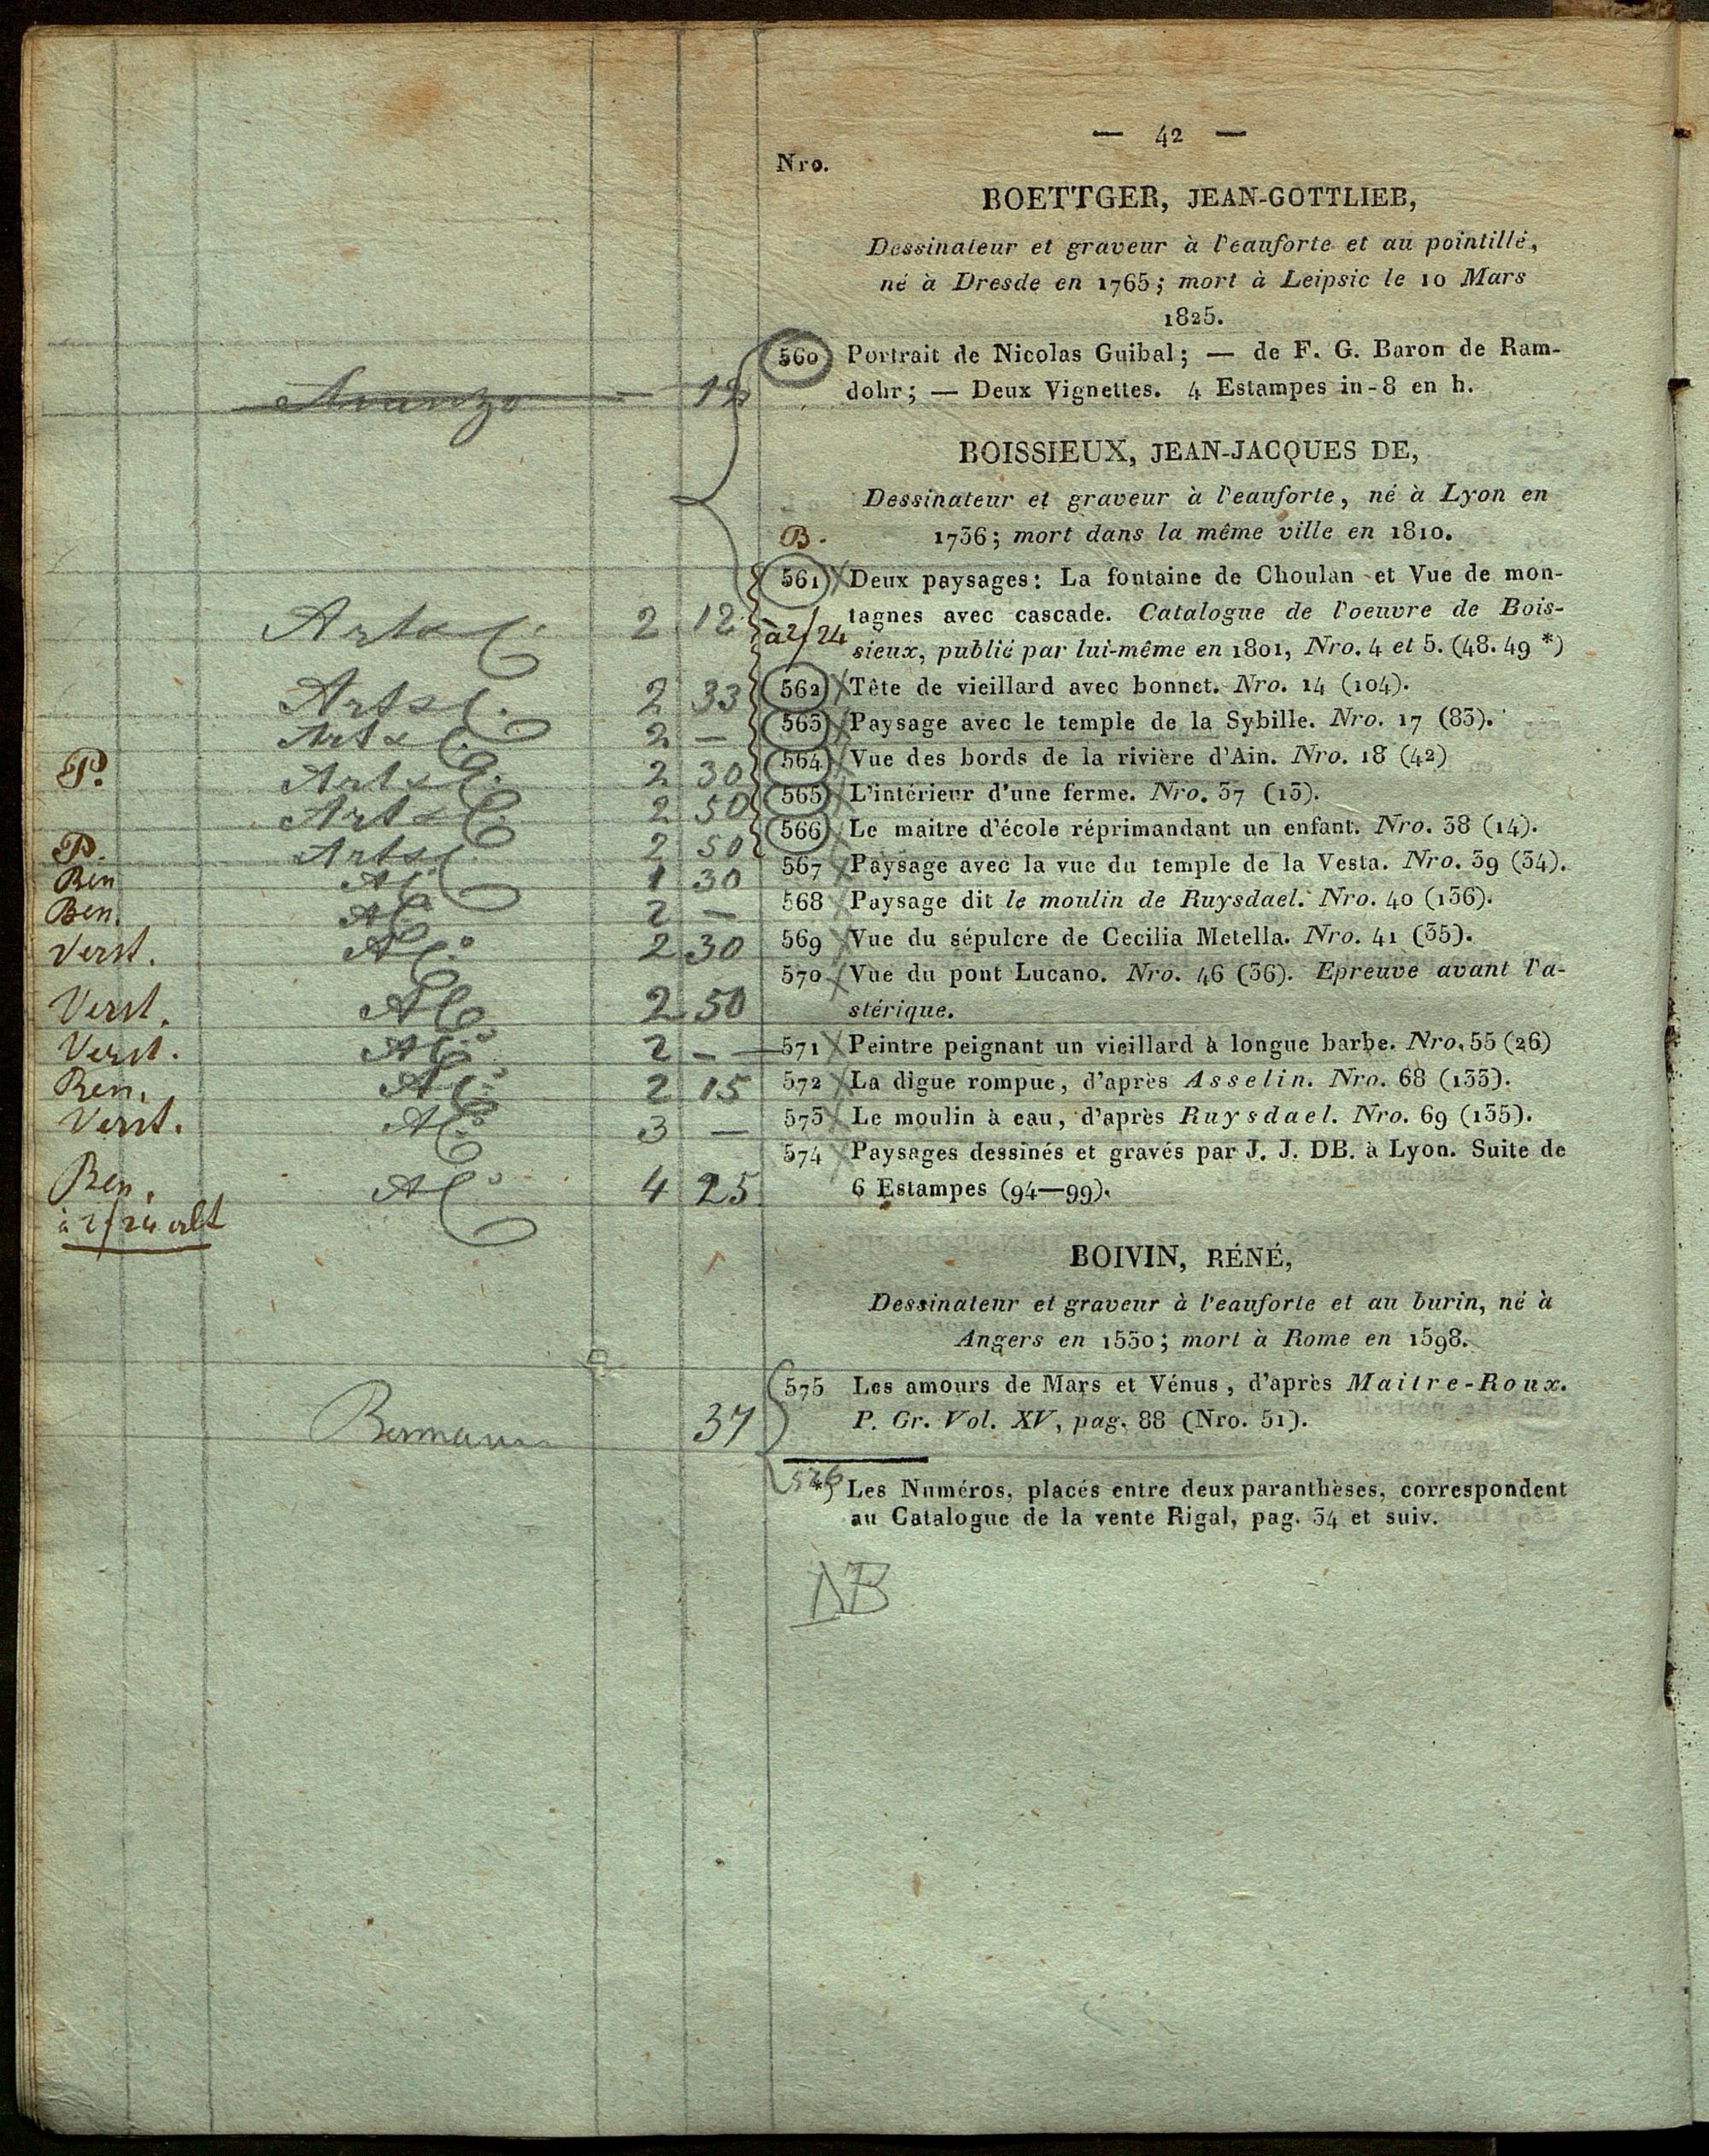 — 42 —
Nro.
BOETTGER, JEAN-GOTTLIEB,
Dessinateur et graveur à l'eauforte et au pointillé,
né à Dresde en 1765; mort à Leipsic le 10 Mars
1825.
560 Portrait de Nicolas Guibal; — de F. G. Baron de Ram-
12 dohr; — Deux Vignettes. 4 Estampes in-8 en h.
BOISSIEUX, JEAN-JACQUES DE,
Dessinateur et graveur à l'eauforte, né à Lyon en
B. 1736; mort dans la même ville en 1810.
561 Deux paysages: La fontaine de Choulan et Vue de mon-
Arta 2 12 à 2/24 tagnes avec cascade. Catalogue de l'oeuvre de Bois-
sieux, publié par lui-même en 1801, Nro. 4 et 5. (48. 49 *)
Arta 2 33 562 Tête de vieillard avec bonnet. Nro. 14 (104).
Arta 2 — 563 Paysage avec le temple de la Sybille. Nro. 17 (83).
P. Arta 2 30 564 Vue des bords de la rivière d'Ain. Nro. 18 (42)
Arta 2 50 565 L'intérieur d'une ferme. Nro. 37 (13).
P. Arta 2 50 566 Le maitre d'école réprimandant un enfant. Nro. 38 (14).
Ben 1 30 567 Paysage avec la vue du temple de la Vesta. Nro. 39 (34).
Ben. 2 — 568 Paysage dit le moulin de Ruysdael. Nro. 40 (136).
Verst. 2 30 569 Vue du sépulcre de Cecilia Metella. Nro. 41 (35).
570 Vue du pont Lucano. Nro. 46 (36). Epreuve avant l'a-
Verst. 2 50 stérique.
Verst. 2 — 571 Peintre peignant un vieillard à longue barbe. Nro. 55 (26)
Ben. 2 15 572 La digue rompue, d'après Asselin. Nro. 68 (133).
Verst. 3 — 573 Le moulin à eau, d'après Ruysdael. Nro. 69 (135).
574 Paysages dessinés et gravés par J. J. DB. à Lyon. Suite de
Ben. 4 25 6 Estampes (94—99).
à 2/24
BOIVIN, RÉNÉ,
Dessinateur et graveur à l'eauforte et au burin, né à
Angers en 1530; mort à Rome en 1598.
575 Les amours de Mars et Vénus, d'après Maitre-Roux.
37 P. Gr. Vol. XV, pag. 88 (Nro. 51).
576
*) Les Numéros, placés entre deux paranthèses, correspondent
au Catalogue de la vente Rigal, pag. 34 et suiv.
NB